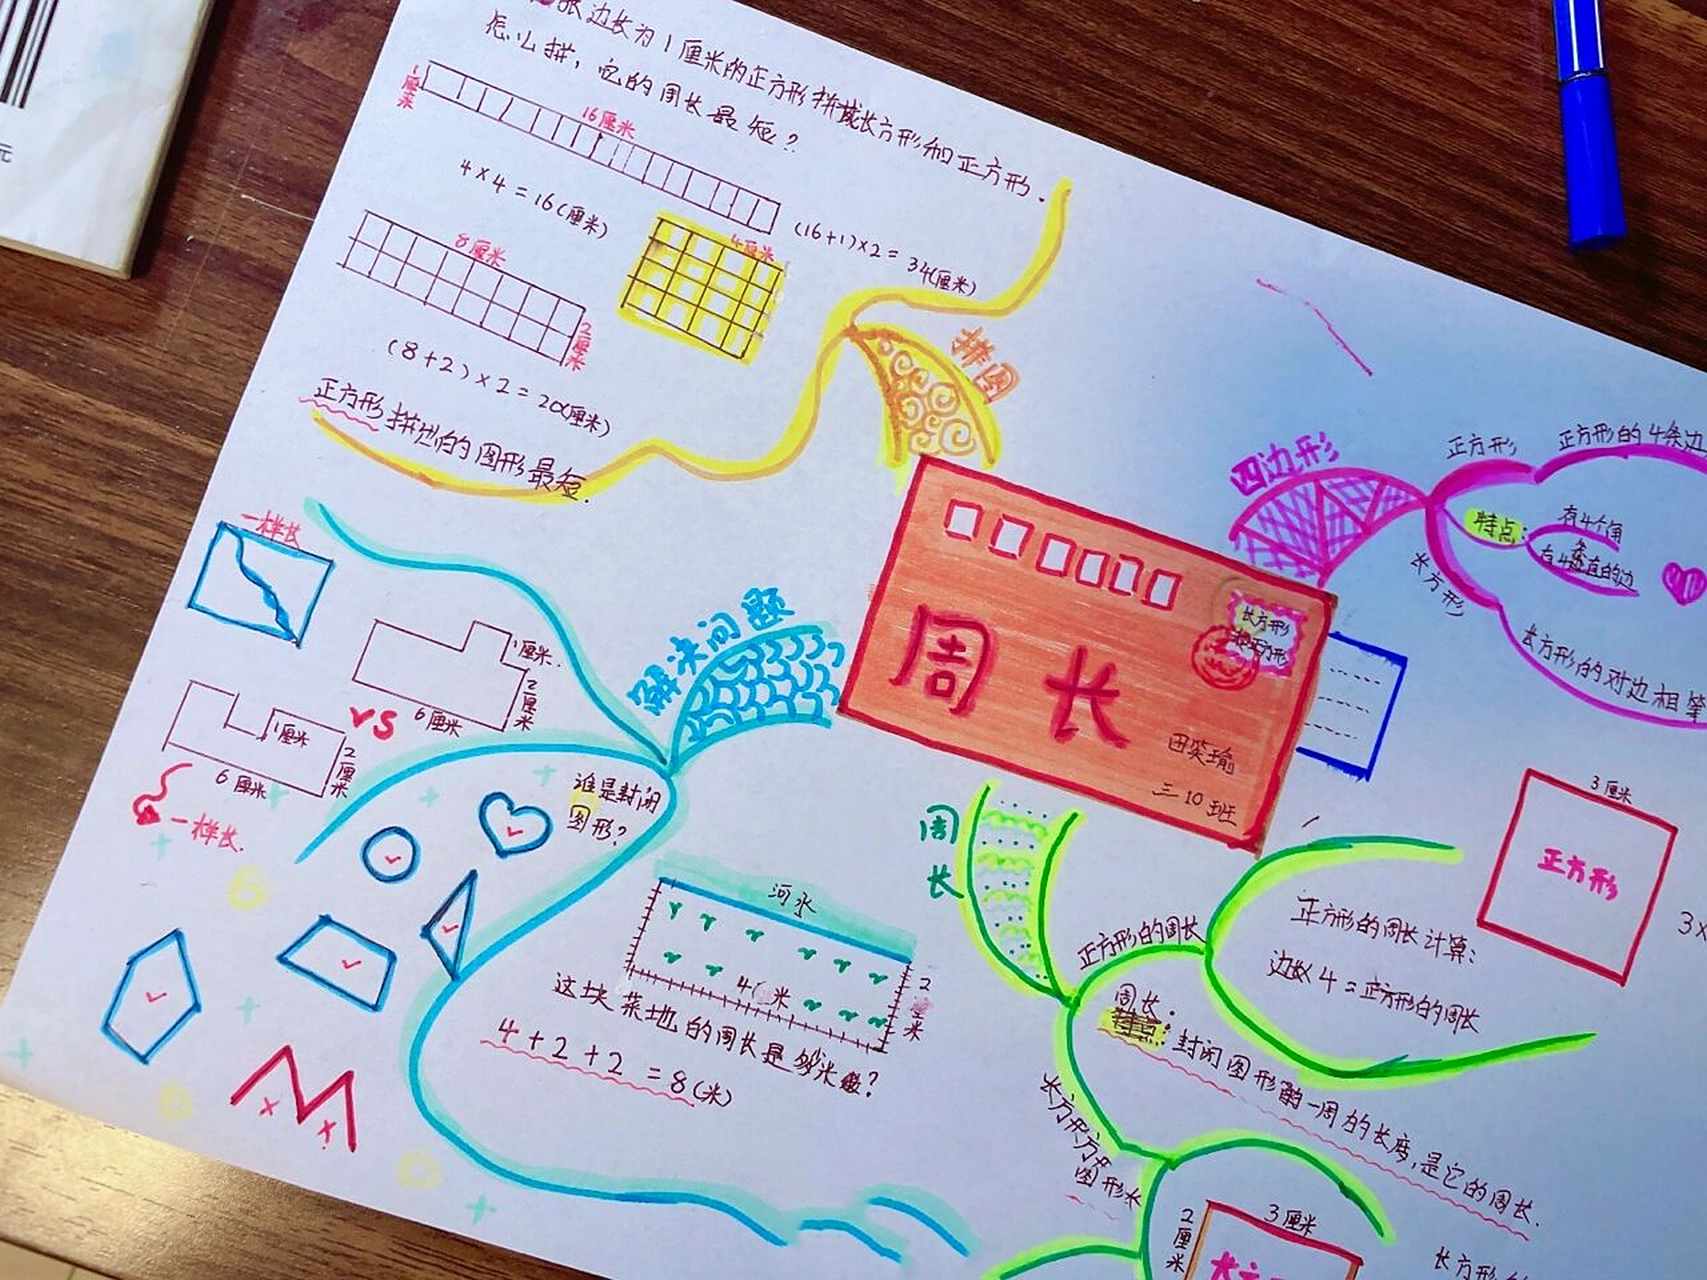 张边长为1厘米的正方形拼成长方形和正方形.
怎么拼，它的周长最短？
1厘米
16厘米
4×4=16(厘米)
(16+1)×2=34(厘米)
8厘米
4厘米
2厘米
(8+2)×2=20(厘米)
正方形拼出的图形最短.
拼图
四边形
正方形
正方形的4条边
特点:
有4个角
有4条直的边
长方形
长方形的对边相等
一样长
解决问题
1厘米.
2厘米
6厘米
VS
1厘米
2厘米
6厘米
一样长.
谁是封闭
图形？
周长
长方形
田笑瑜
三10班
河水
2米
这块菜地的周长是多少米？
4+2+2=8(米)
周长
正方形的周长
正方形的周长计算:
边长4=正方形的周长
3厘米
正方形
3×
周长.
封闭图形一周的长度,是它的周长.
3厘米
2厘米
长方形的